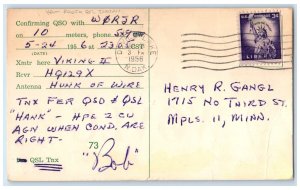 Confirming QSO with WØRJR
on 10 meters, phone,
(BAND)
5-24 1956 2305 CST
Xmtr here VIKING II
Receiver HQ129X
Antenna HUNK OF WIRE
TNX FER QSO & QSL
"HANK" - HPE 2 CU
AGN WHEN COND. ARE
RIGHT-
73
QSL Tnx "Bob"
1956
N.DAK.
3¢
LIBERTY
HENRY R. GANGL
1715 NO THIRD ST.
MPLS. 11, MINN.